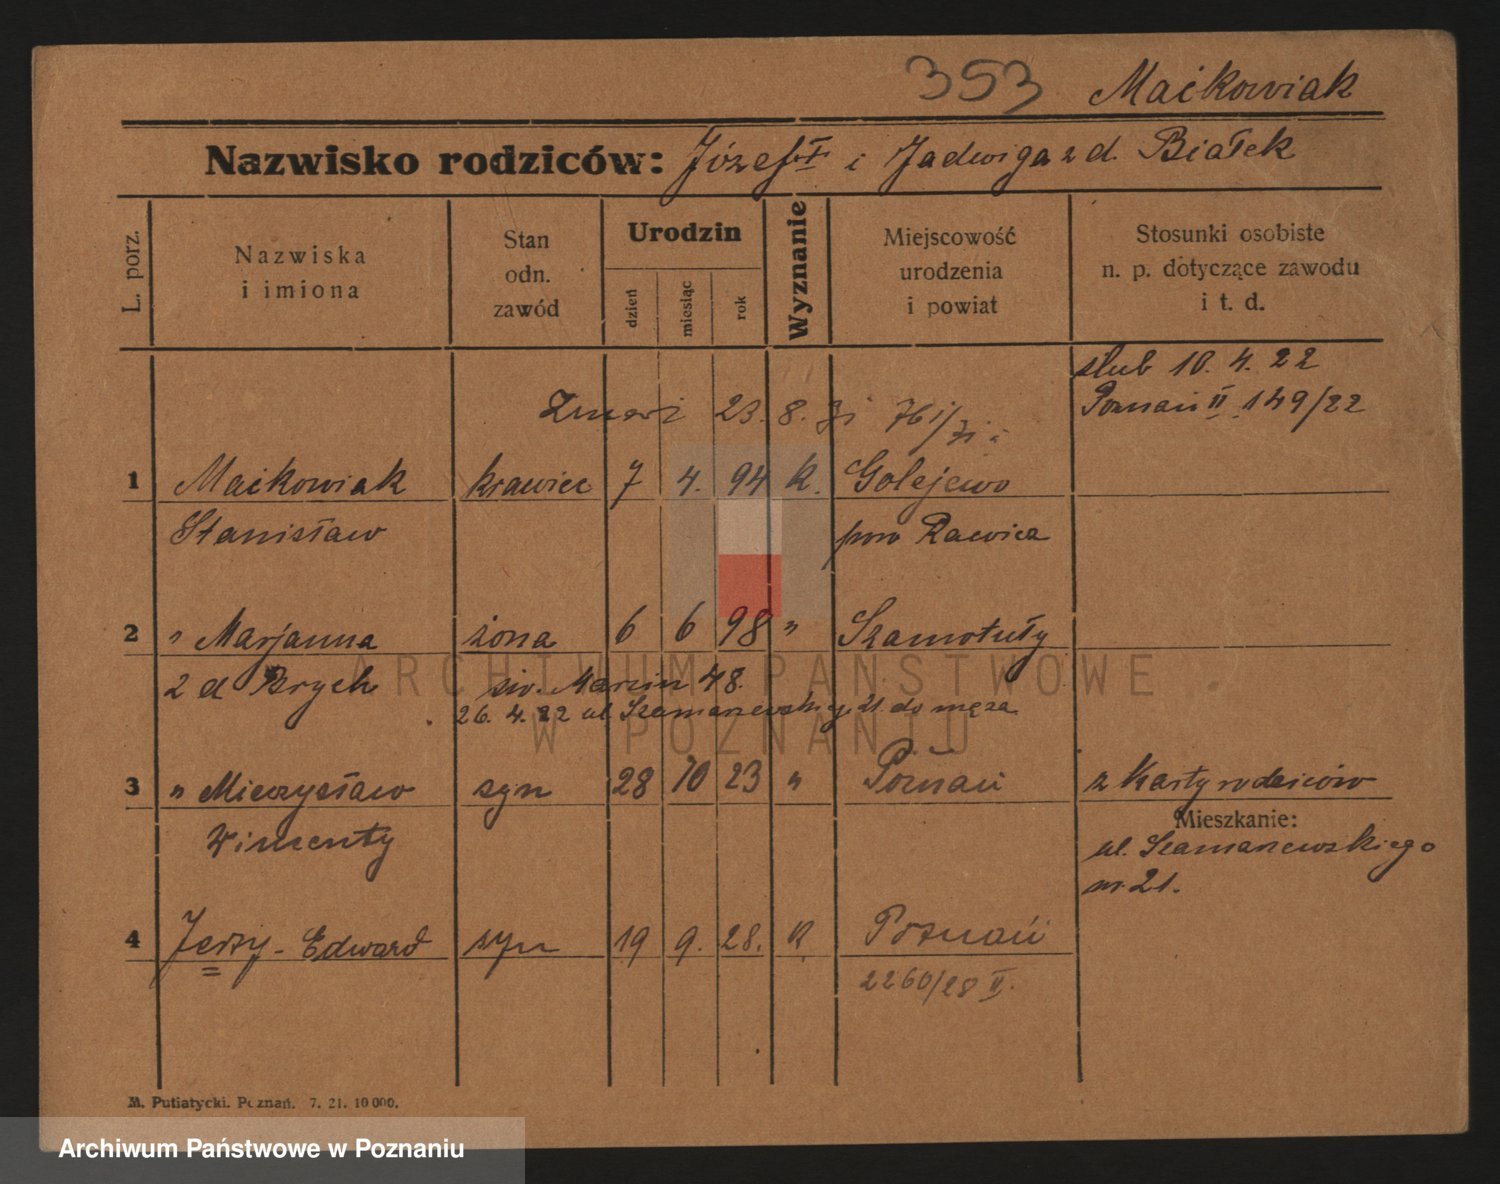 353 Maćkowiak
Nazwisko rodziców: Józef † i Jadwiga z d. Białek
L. porz.
Nazwiska
i imiona
Stan
odn.
zawód
Urodzin
dzień
miesiąc
rok
Wyznanie
Miejscowość
urodzenia
i powiat
Stosunki osobiste
n. p. dotyczące zawodu
i t. d.
ślub 10. 4. 22
Poznań II 149/22
23. 8.
1 Maćkowiak krawiec 7 4. 94 k. Golejewo
Stanisław pow Rawicz
2 " Marjanna żona 6 6 98 " Szamotuły
z d Krych św. Marcin 48.
26. 4. 22 ul. Szamarzewskieg. 21. do męża
3 " Mieczysław syn 28 10 23 " Poznań z karty rodziców
Mieszkanie:
Wincenty ul. Szamarzewskiego
nr. 21.
4 Jerzy - Edward syn 19 9. 28. k. Poznań
2260/28 II.
ARCHIWUM PAŃSTWOWE
W POZNANIU
M. Putiatycki. Poznań. 7. 21. 10 000.
Archiwum Państwowe w Poznaniu